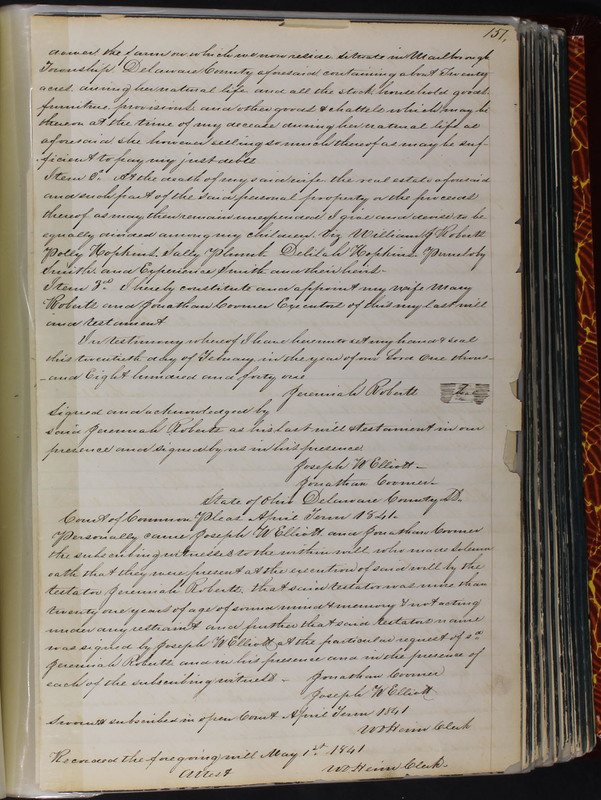 157.
dower the farm on which we now reside situate in Marlborough
Township Delaware County aforesaid containing about Twenty
acres during her natural life and all the stock household goods
furniture, provisions and other goods & chattels which may be
thereon at the time of my decease during her natural life as
aforesaid she however selling so much thereof as may be suf-
-ficient to pay my just debts
Item 2d At the death of my said wife the real estate aforesaid
and such part of the said personal property or the proceeds
thereof as may then remain unexpended I give and devise to be
equally divided among my children viz William Roberts
Polly Hopkins, Sally Plumb Delilah Hopkins,
Smith, and Experience Smith and their heirs-
Item 3rd I hereby constitute and appoint my wife Mary
Roberts and Jonathan Coomer Executors of this my last will
and testament
In testimony whereof I have hereunto set my hand & seal
this twentieth day of in the year of our Lord One thous-
-and Eight hundred and forty one
Jeremiah Roberts
Signed and acknowledged by
said Jeremiah Roberts as his last will & testament in our
presence and signed by us in his presence
Joseph W Elliott -
Jonathan Coomer -
State of Ohio Delaware County Ss.
Court of Common Pleas April Term 1841.
Personally came Joseph W Elliott and Jonathan Coomer
the subscribing witnesses to the within will who made solemn
oath that they were present at the execution of said will by the
testator Jeremiah Roberts, that said testator was more than
twenty one years of age of sound mind & memory & not acting
under any restraint and further that said testators name
was signed by Joseph W Elliott at the particular request of sd
Jeremiah Roberts and in his presence and in the presence of
each of the subscribing witness - Jonathan Coomer
Joseph W Elliott
Sworn & subscribed in open Court April Term 1841
W Heim Clerk
Recorded the foregoing will May 1st 1841
Attest W Heim Clerk.